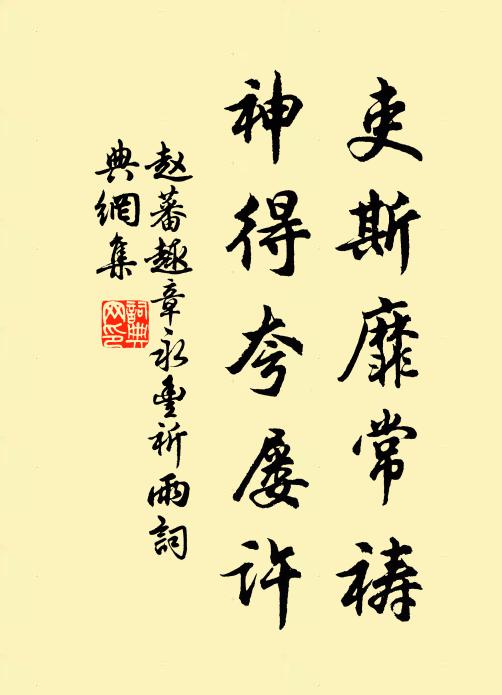 吏斯靡常祷
神得夸屡许
赵蕃趣章永丰祈雨词
典網集
詞典
网印